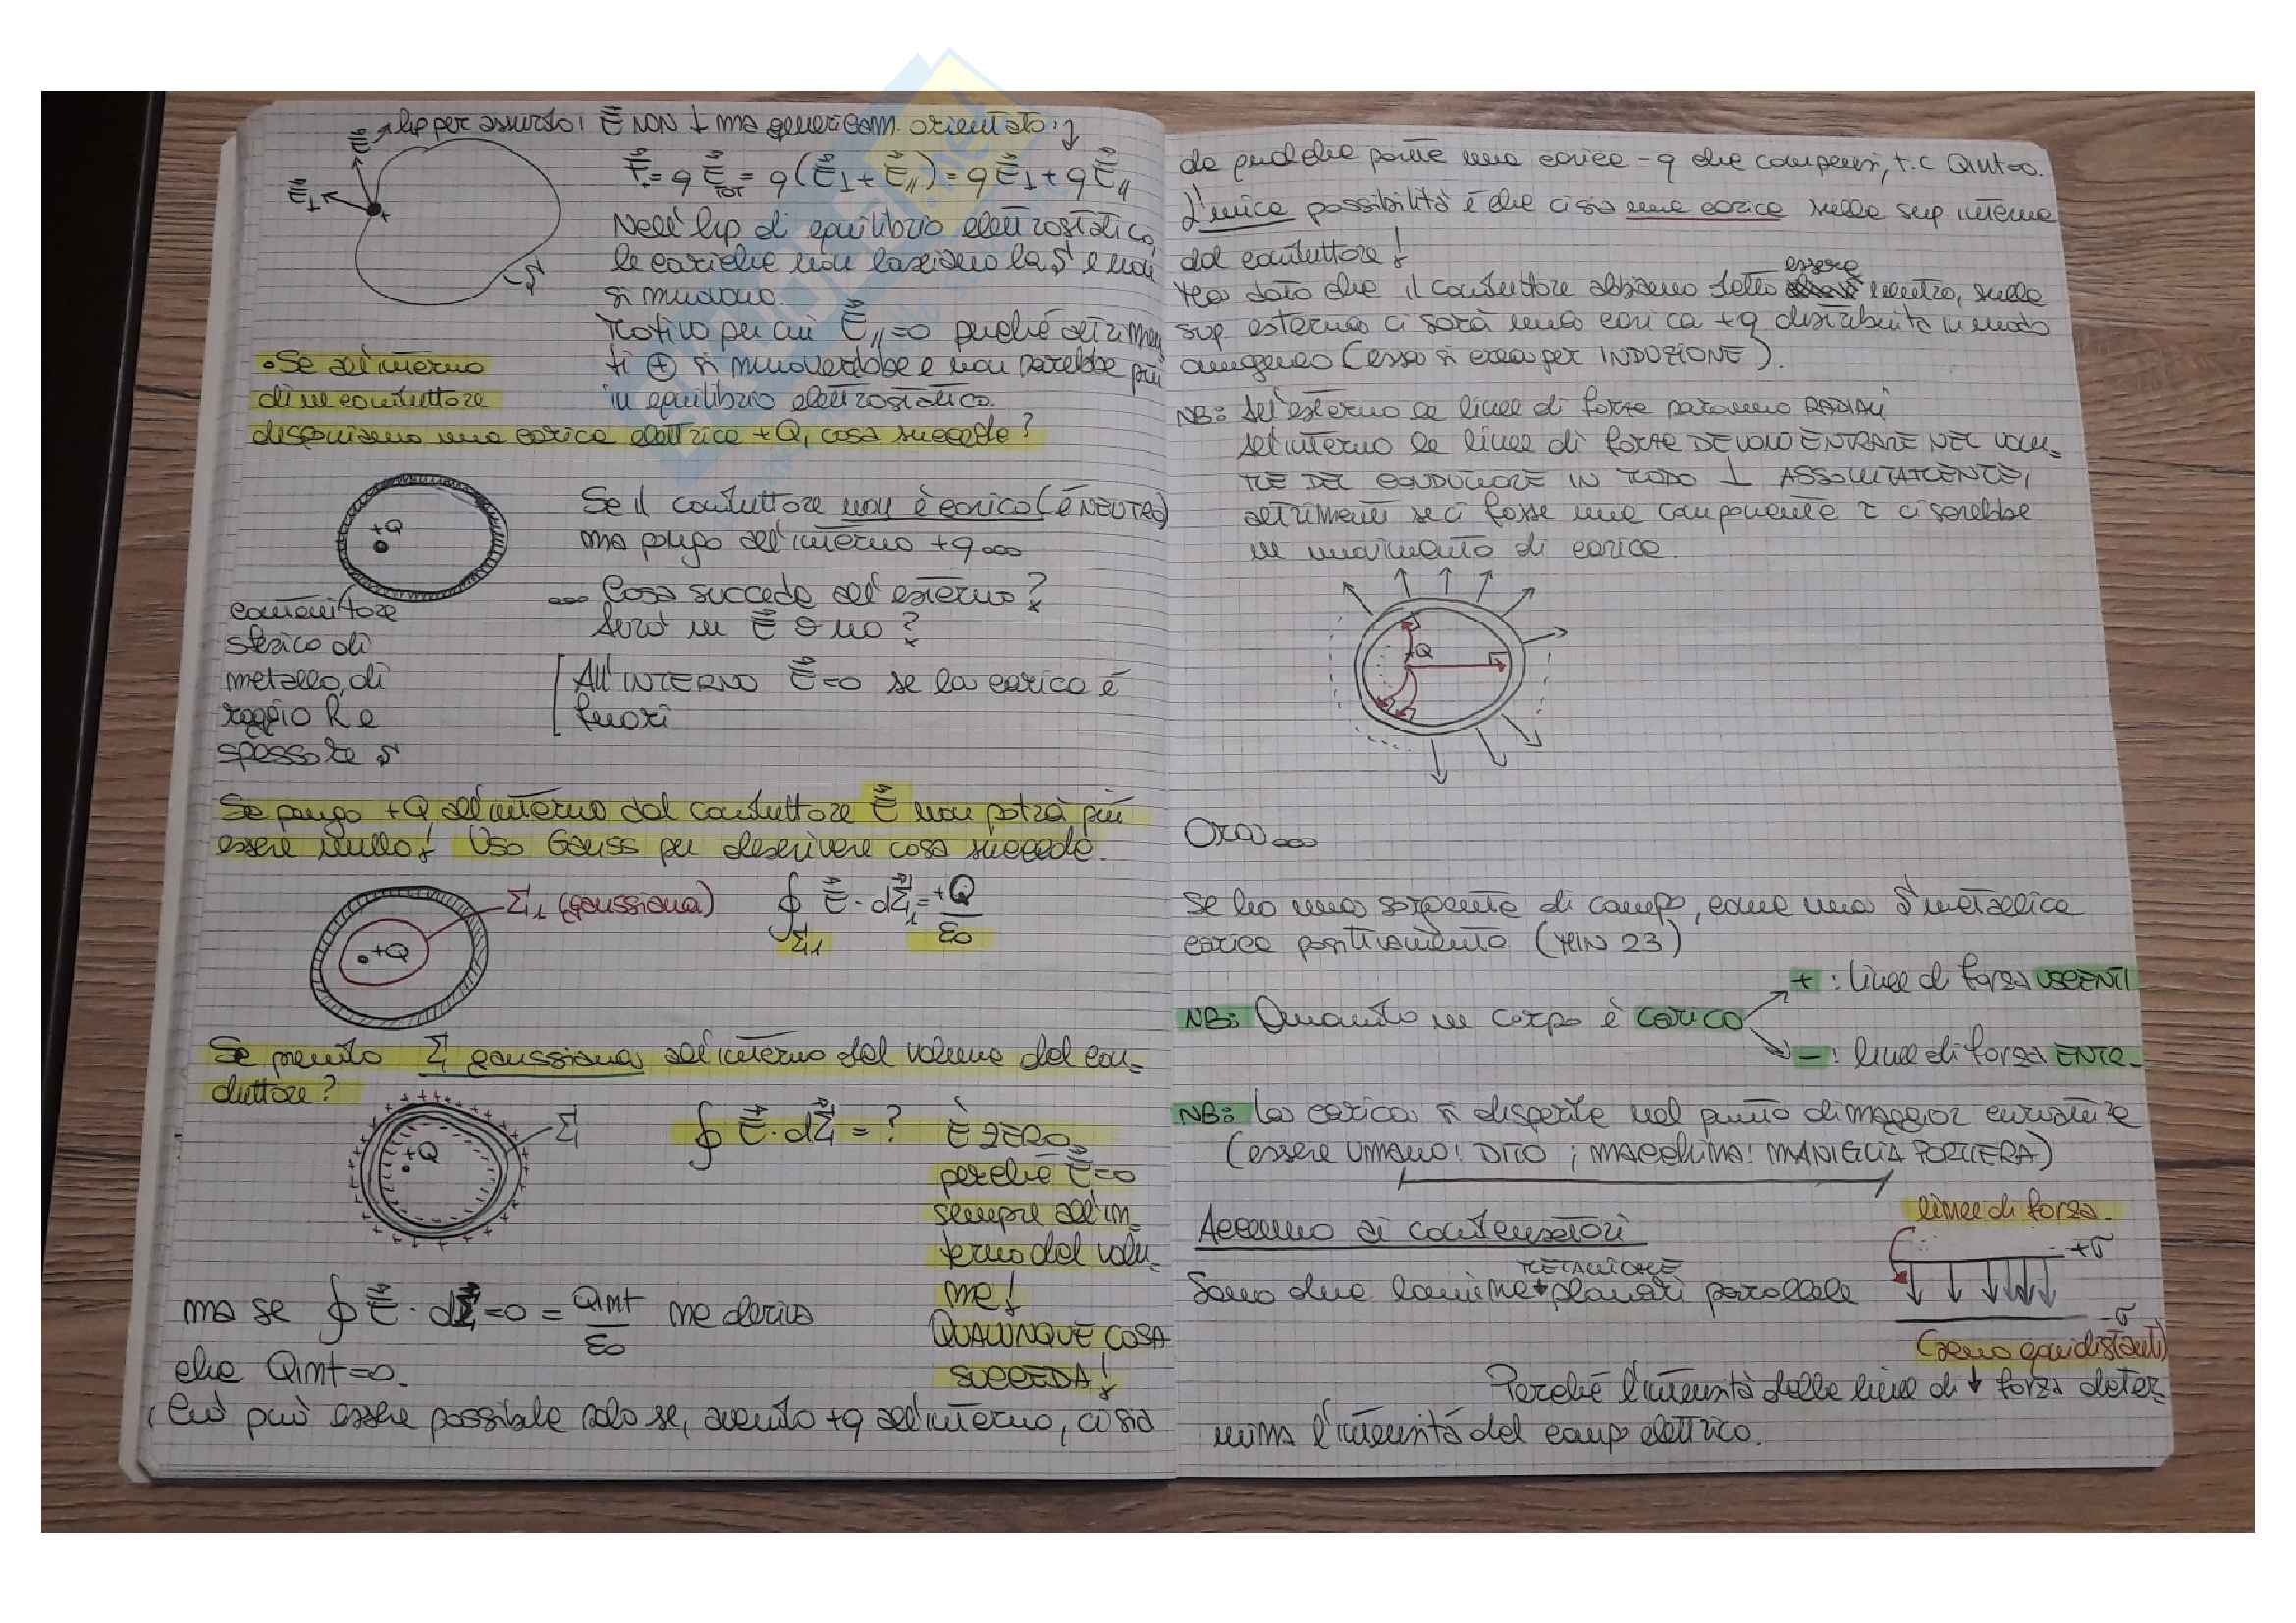 Hp per assurdo: E NON ⊥ ma genericam. orientato:
F = qE_TOT = q(E⊥ + E∥) = qE⊥ + qE∥
E∥
E⊥
+
S
Nell'hp di equilibrio elettrostatico,
le cariche non lasciano la S e non
si muovono.
Motivo per cui E∥=0 perché altrimen
ti ⊕ si muoverebbe e non sarebbe più
in equilibrio elettrostatico.
• Se all'interno
di un conduttore
disponiamo una carica elettrica +Q, cosa succede?
+Q
Se il conduttore non è carico (è NEUTRO)
ma pongo all'interno +q ...
... Cosa succede all'esterno?
Avrò un E o no?
contenitore
sferico di
metallo, di
raggio R e
spessore s
All'INTERNO E=0 se la carica è
fuori
Se pongo +Q all'interno del conduttore E non potrà più
essere nullo! Uso Gauss per descrivere cosa succede.
+Q
Σ1 (gaussiana)
∮Σ1 E · dΣ1 = +Q/ε0
Se prendo Σ gaussiana all'interno del volume del con-
duttore?
+Q
Σ
∮ E · dΣ = ?
È ZERO,
perché E=0
sempre all'in-
terno del volu-
me!
QUALUNQUE COSA
SUCCEDA!
ma se ∮ E · dΣ = 0 = Qint/ε0 ne deriva
che Qint=0.
Ciò può essere possibile solo se, avendo +q all'interno, ci sia
da qualche parte una carica -q che compensi, t.c Qint=0.
L'unica possibilità è che ci sia una carica sulla sup interna
del conduttore!
Ma dato che il conduttore abbiamo detto essere neutro, sulla
sup esterna ci sarà una carica +q distribuita in modo
omogeneo (essa si crea per INDUZIONE).
NB: All'esterno le linee di forza saranno RADIALI
All'interno le linee di forza DEVONO ENTRARE NEL VOLU-
ME DEL CONDUTTORE IN MODO ⊥ ASSOLUTAMENTE,
altrimenti se ci fosse una componente τ ci sarebbe
un movimento di carica.
+Q
Ora ...
Se ho una sorgente di campo, come una S metallica
carica positivamente (MIN 23)
+ : linee di forza USCENTI
NB: Quando un corpo è carico
- : linee di forza ENTR-
NB: La carica si disperde nel punto di maggior curvatura
(essere umano: DITO ; macchina: MANIGLIA PORTIERA)
Accenno ai condensatori
linee di forza
+σ
Sono due lamine METALLICHE planari parallele
-σ
(sono equidistanti)
Perché l'intensità delle linee di forza deter-
mina l'intensità del campo elettrico.